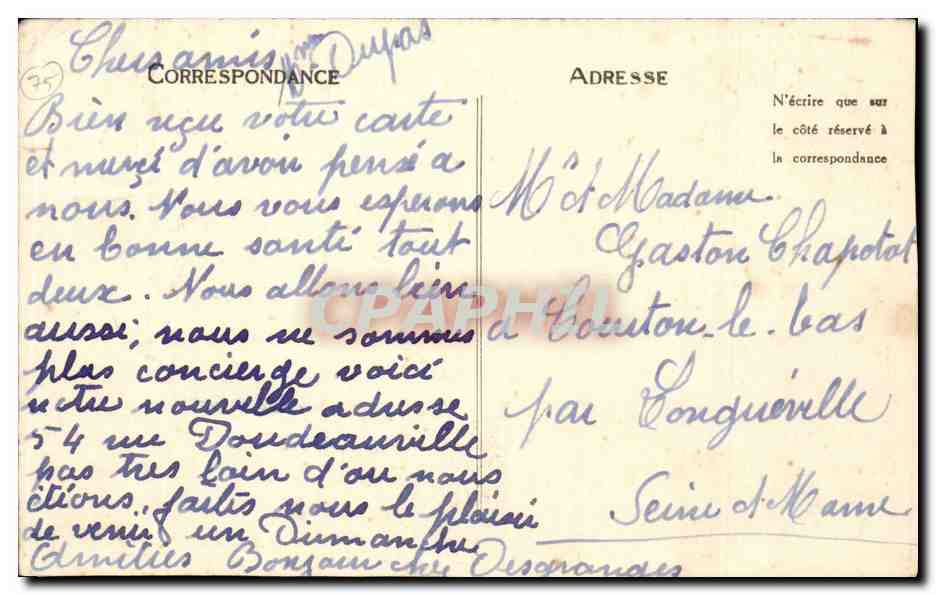 Chers amis
Mme Dupas
75
CORRESPONDANCE
Bien reçu votre carte
et merçi d'avoir pensé a
nous. Nous vous esperons
en bonne santé tout
deux. Nous allons bien
aussi, nous ne sommes
plus concierge voici
notre nouvelle adresse
54 rue Doudeauville
pas tres loin d'ou nous
étions, faites nous le plaisir
de venir un Dimanche
Amitiés Bonjour chez Desgranges
ADRESSE
N'écrire que sur
le côté réservé à
la correspondance
Mr et Madame
Gaston Chapotot
a Courton-le-bas
par Longuéville
Seine et Marne
CPAPHIL